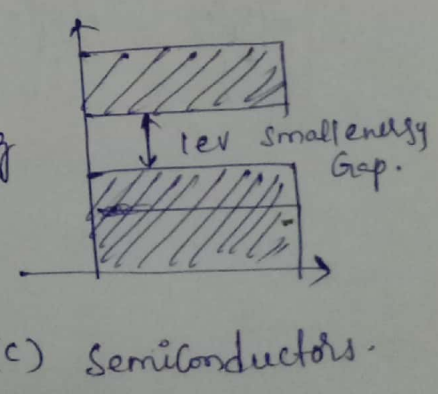 1ev small energy
Gap.
c) Semiconductors.